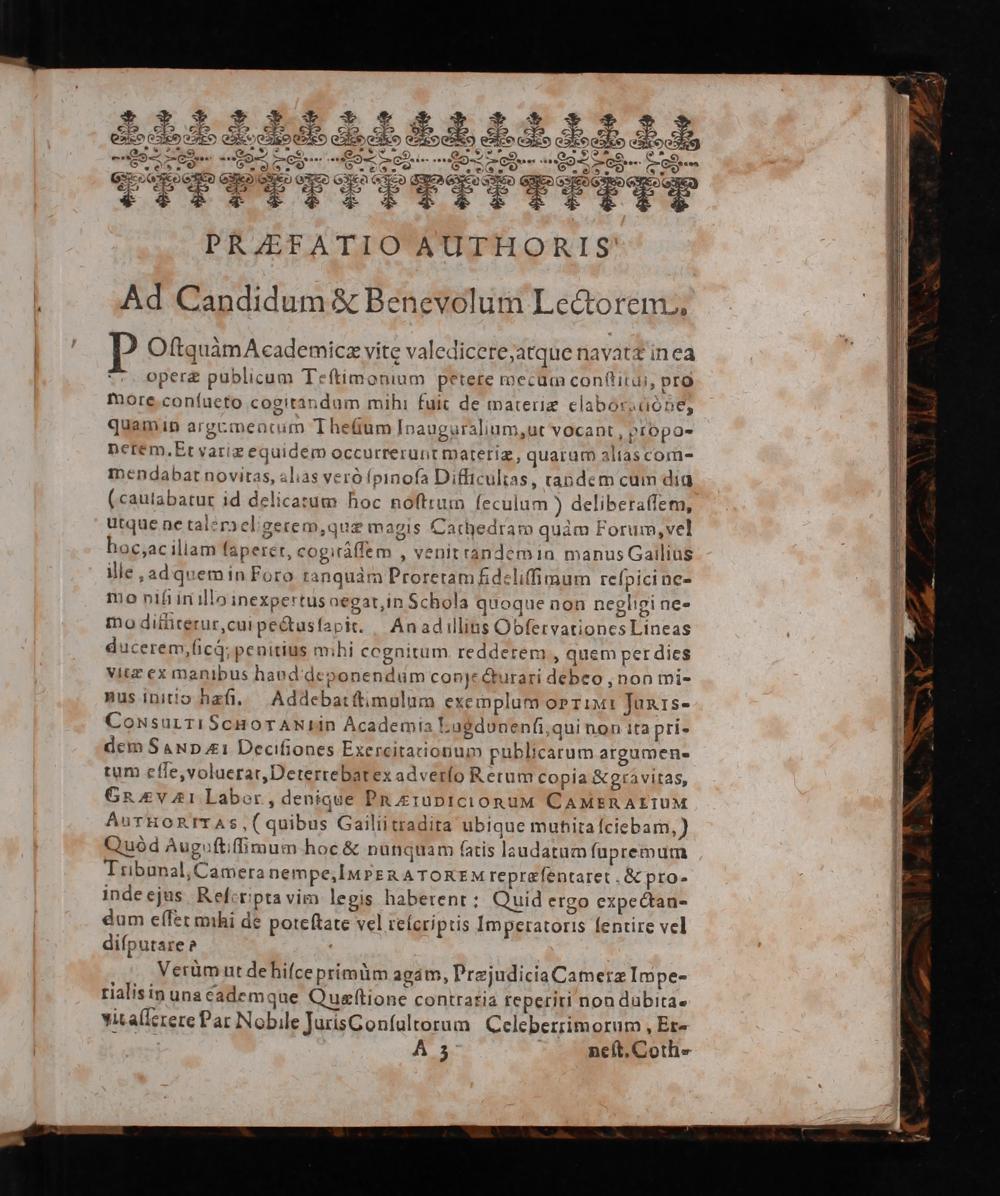 PRÆFATIO AUTHORIS
Ad Candidum & Benevolum Lectorem.
POſtquàm Academicæ vitę valedicere, atque navatæ in ea
operæ publicum Teſtimonium petere mecum conſtitui, pro
more conſueto cogitandum mihi fuit de materiæ elaboratiòne,
quam in argumentum Theſium Inauguralium, ut vocant, propo-
nerem. Et variæ equidem occurrerunt materiæ, quarum alias com-
mendabat novitas, alias verò ſpinoſa Difficultas, tandem cum diu
(cautabatur id delicatum hoc noſtrum ſeculum) deliberaſſem,
utque ne talem eligerem, quæ magis Cathedram quàm Forum, vel
hoc, ac illam ſaperet, cogitáſſem, venit tandem in manus Gailius
ille, ad quem in Foro tanquàm Proretam fideliſſimum reſpici ne-
mo niſi in illo inexpertus negat, in Schola quoque non negligi ne-
mo diffitetur, cui pectus ſapit. An ad illius Obſervationes Lineas
ducerem, ſicq; penitius mihi cognitum redderem, quem per dies
vitæ ex manibus haud deponendum conjecturari debeo, non mi-
nus initio hæſi. Addebat ſtimulum exemplum OPTIMI JURIS-
CONSULTI SCHOTANI in Academia Lugdunenſi, qui non ita pri-
dem SANDÆI Deciſiones Exercitationum publicarum argumen-
tum eſſe, voluerat, Deterrebat ex adverſo Rerum copia & gravitas,
GRÆVÆI Labor, denique PRÆIUDICIORUM CAMERALIUM
AUTHORITAS, (quibus Gailii tradita ubique munita ſciebam,)
Quòd Auguſtiſſimum hoc & nunquam ſatis laudatum ſupremum
Tribunal, Camera nempe, IMPERATOREM repræſentaret, & pro-
inde ejus Reſcripta vim legis haberent: Quid ergo expectan-
dum eſſet mihi de poteſtate vel reſcriptis Imperatoris ſentire vel
diſputare?
Verùm ut de hiſce primùm agam, Præjudicia Cameræ Impe-
rialis in una eademque Quæſtione contraria reperiri non dubita-
vit aſſerere Par Nobile JurisConſultorum Celeberrimorum, Er-
A 3 neſt. Coth-